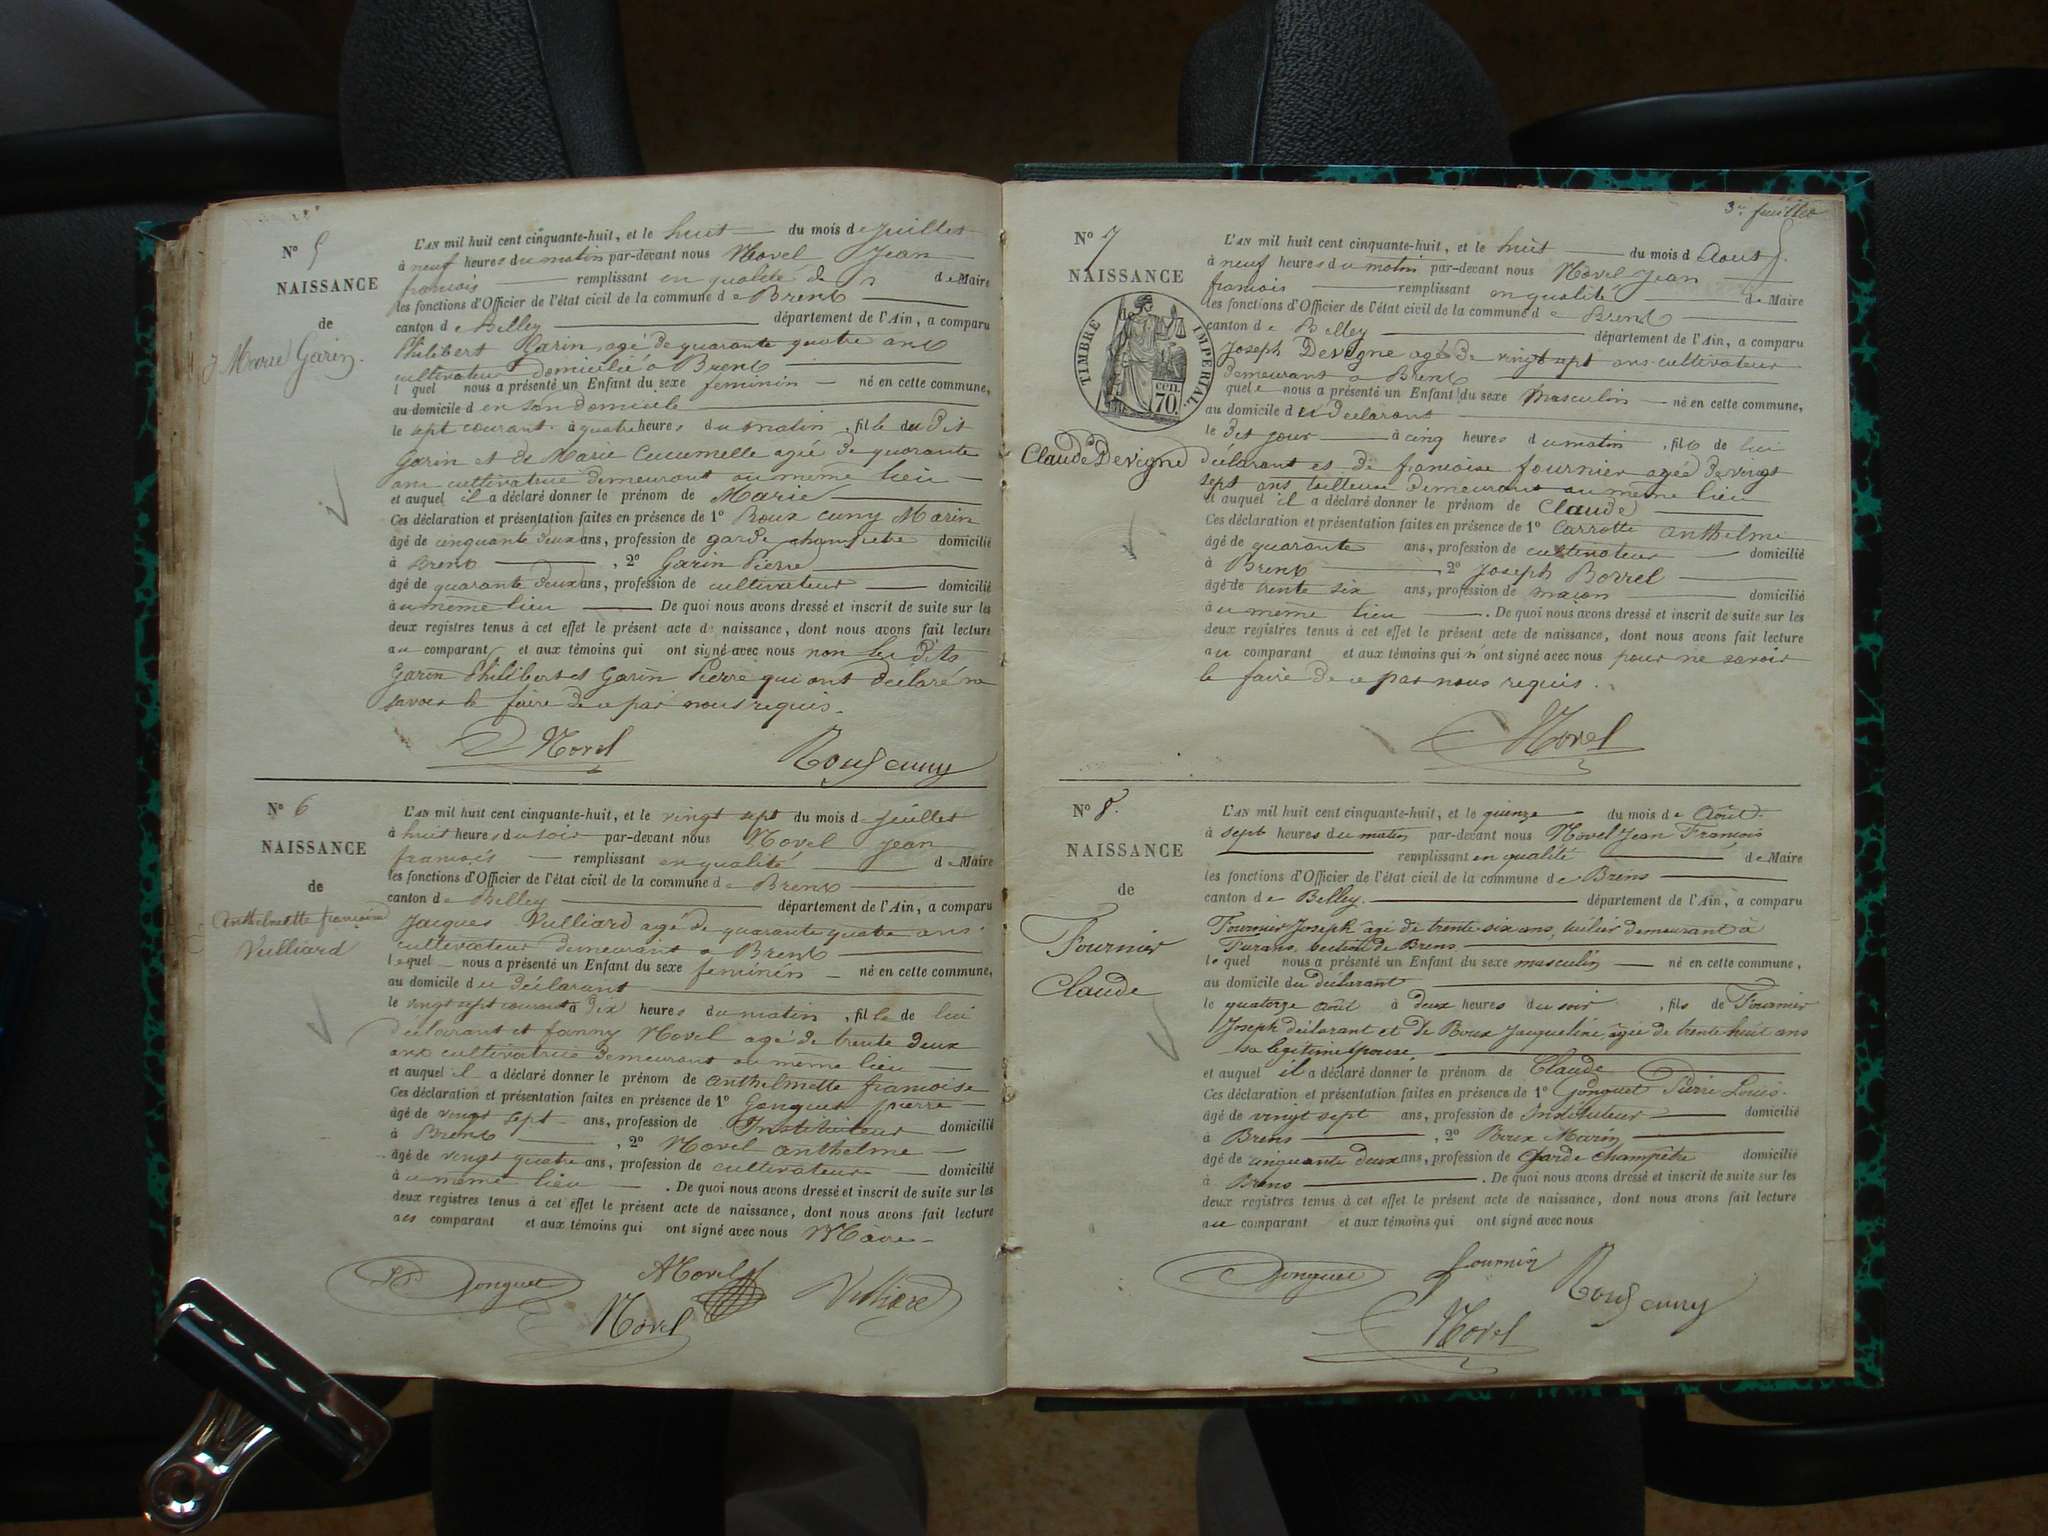 N° 5
NAISSANCE
de
Marie Garin.
L'AN mil huit cent cinquante-huit, et le huit du mois de Juillet
à neuf heures du matin par-devant nous Novel Jean
francois remplissant en qualité de Maire
les fonctions d'Officier de l'état civil de la commune de Brens
canton de Belley département de l'Ain, a comparu
Philibert Garin agé de quarante quatre ans
cultivateur domicilié à Brens
lequel nous a présenté un Enfant du sexe feminin né en cette commune,
au domicile d en son domicile
le sept courant à quatre heures du matin, fille du dit
Garin et de Marie Cucumelle agée de quarante
ans cultivatrice demeurant au même lieu
et auquel il a déclaré donner le prénom de Marie
Ces déclaration et présentation faites en présence de 1° Roux cuny Marin
âgé de cinquante deux ans, profession de garde champetre domicilié
à Brens, 2° Garin Pierre
âgé de quarante deux ans, profession de cultivateur domicilié
à u même lieu De quoi nous avons dressé et inscrit de suite sur les
deux registres tenus à cet effet le présent acte de naissance, dont nous avons fait lecture
au comparant et aux témoins qui ont signé avec nous non les dits
Garin Philibert et Garin Pierre qui ont déclaré ne
savoir le faire de ce par nous requis.
Novel Rouxcuny
N° 6
NAISSANCE
de
Anthelmette francoise
Vulliard
L'AN mil huit cent cinquante-huit, et le vingt sept du mois de juillet
à huit heures du soir par-devant nous Novel Jean
francois remplissant en qualité de Maire
les fonctions d'Officier de l'état civil de la commune de Brens
canton de Belley département de l'Ain, a comparu
Jacques Vulliard agé de quarante quatre ans
cultivateur demeurant à Brens
lequel nous a présenté un Enfant du sexe feminin né en cette commune,
au domicile du déclarant
le vingt sept courant à dix heures du matin, fille de lui
déclarant et fanny Novel agé de trente deux
ans cultivatrice demeurant au même lieu
et auquel il a déclaré donner le prénom de anthelmette francoise
Ces déclaration et présentation faites en présence de 1° Gonguet pierre
âgé de vingt sept ans, profession de Instituteur domicilié
à Brens, 2° Novel anthelme
âgé de vingt quatre ans, profession de cultivateur domicilié
à u même lieu. De quoi nous avons dressé et inscrit de suite sur les
deux registres tenus à cet effet le présent acte de naissance, dont nous avons fait lecture
aus comparant et aux témoins qui ont signé avec nous Maire
Gonguet ANovel Vulliard
Novel
3e feuillet
N° 7
NAISSANCE
de
TIMBRE IMPERIAL
70 cen.
Claude Devigne
L'AN mil huit cent cinquante-huit, et le huit du mois d Aout
à neuf heures du matin par-devant nous Novel Jean
francois remplissant en qualité de Maire
les fonctions d'Officier de l'état civil de la commune de Brens
canton de Belley département de l'Ain, a comparu
Joseph Devigne agé de vingt sept ans cultivateur
demeurant à Brens
quel e nous a présenté un Enfant du sexe Masculin né en cette commune,
au domicile du déclarant
le dit jour à cinq heures du matin, fils de lui
déclarant et de francoise fournier agée de vingt
sept ans tailleuse demeurant au même lieu
et auquel il a déclaré donner le prénom de Claude
Ces déclaration et présentation faites en présence de 1° Carrotte anthelme
âgé de quarante ans, profession de cultivateur domicilié
à Brens 2° Joseph Borrel
âgé de trente six ans, profession de maçon domicilié
à u même lieu. De quoi nous avons dressé et inscrit de suite sur les
deux registres tenus à cet effet le présent acte de naissance, dont nous avons fait lecture
au comparant et aux témoins qui n'ont signé avec nous pour ne savoir
le faire de ce par nous requis.
Novel
N° 8.
NAISSANCE
de
Fournier
Claude
L'AN mil huit cent cinquante-huit, et le quinze du mois de Août.
à sept heures du matin par-devant nous Novel Jean François
remplissant en qualité de Maire
les fonctions d'Officier de l'état civil de la commune de Brens
canton de Belley. département de l'Ain, a comparu
Fournier Joseph âgé de trente six ans, demeurant à
section de Brens
lequel nous a présenté un Enfant du sexe masculin né en cette commune,
au domicile du déclarant
le quatorze août à deux heures du soir, fils de Fournier
Joseph déclarant et de Roux Jacqueline, âgée de trente huit ans
sa légitime épouse.
et auquel il a déclaré donner le prénom de Claude
Ces déclaration et présentation faites en présence de 1° Gonguet Pierre Louis.
âgé de vingt sept ans, profession de Instituteur domicilié
à Brens, 2° Roux Marin
âgé de cinquante deux ans, profession de Garde Champêtre domicilié
à Brens. De quoi nous avons dressé et inscrit de suite sur les
deux registres tenus à cet effet le présent acte de naissance, dont nous avons fait lecture
au comparant et aux témoins qui ont signé avec nous
Gonguet fournier Rouxcuny
Novel